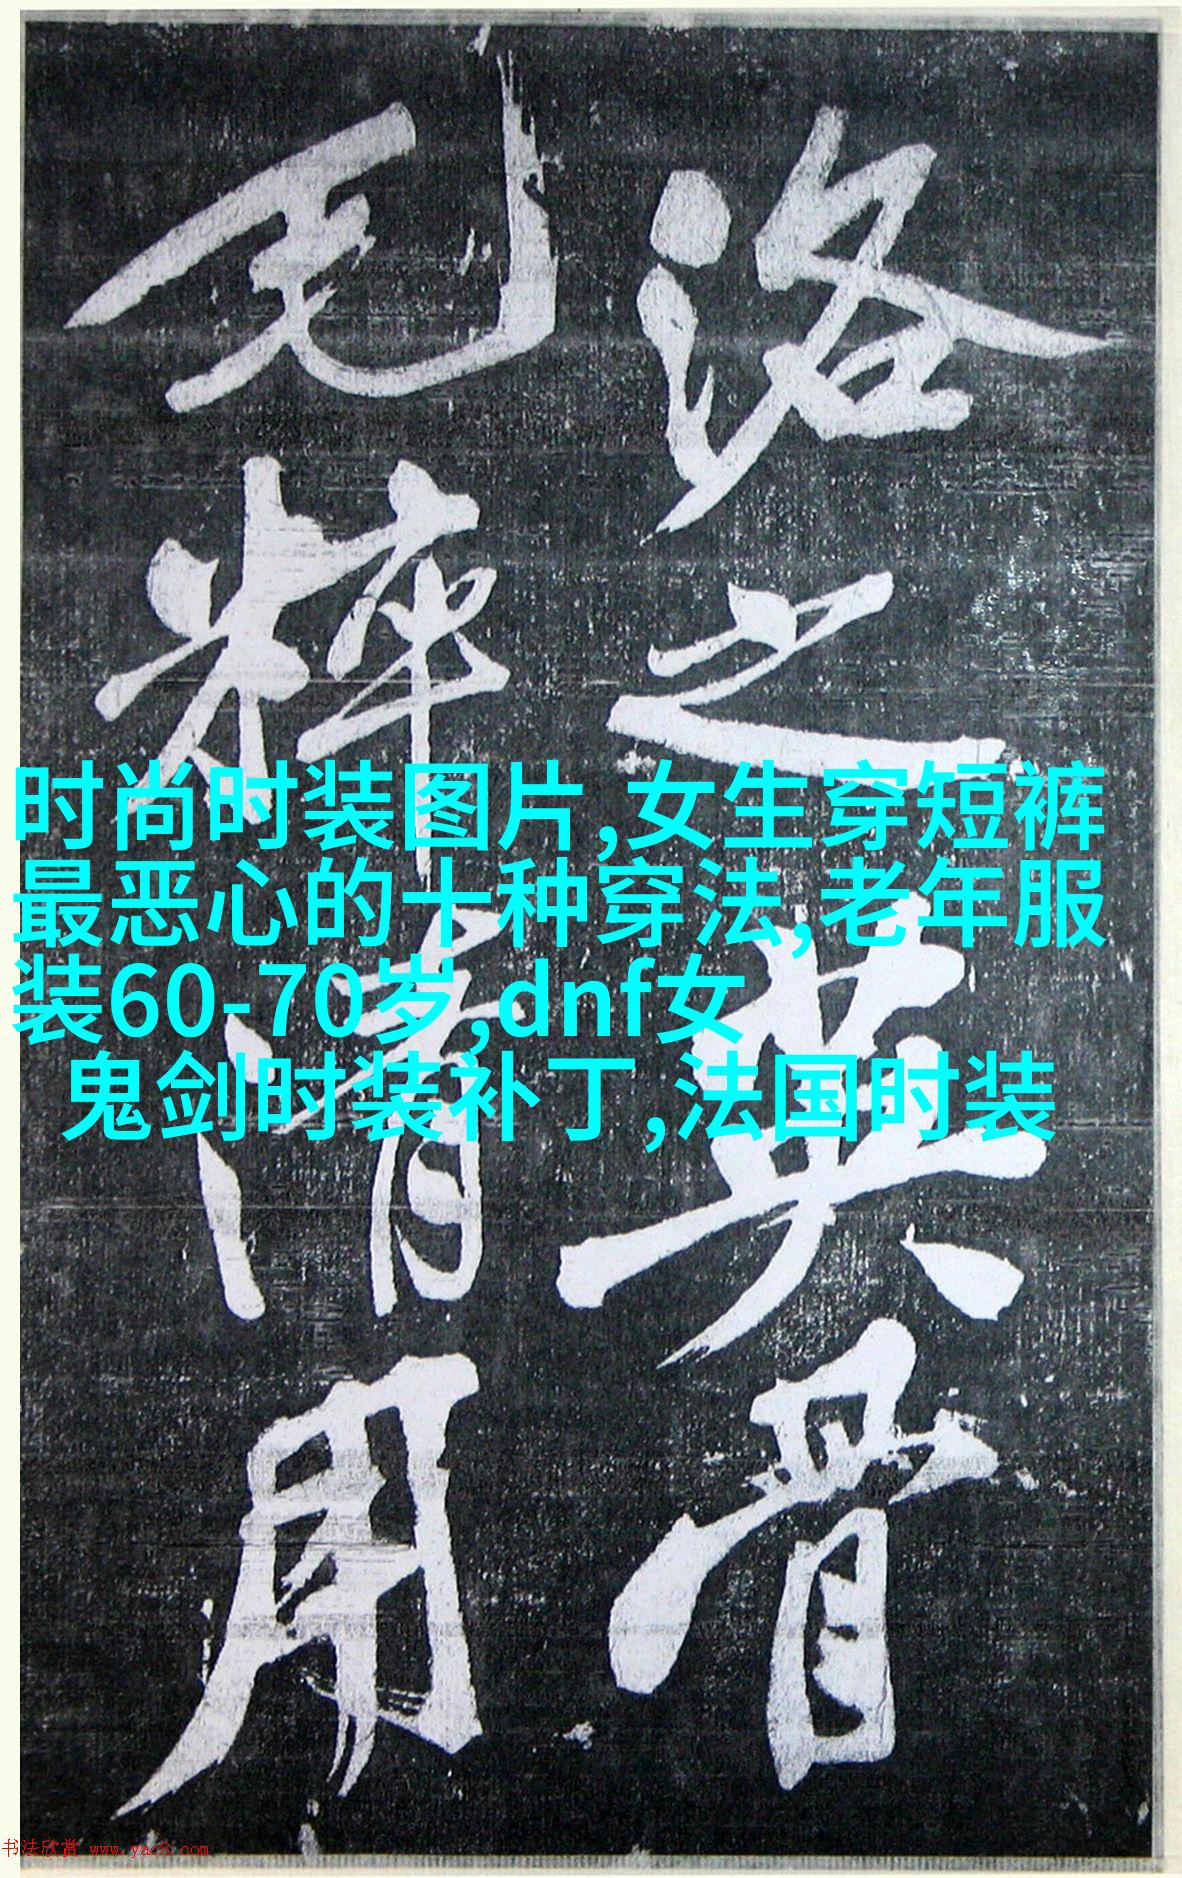 洛之英骨
毛粹清用
时尚时装图片,女生穿短裤
最恶心的十种穿法,老年服
装60-70岁,dnf女
鬼剑时装补丁,法国时装
书法欣赏 www.yac8.com